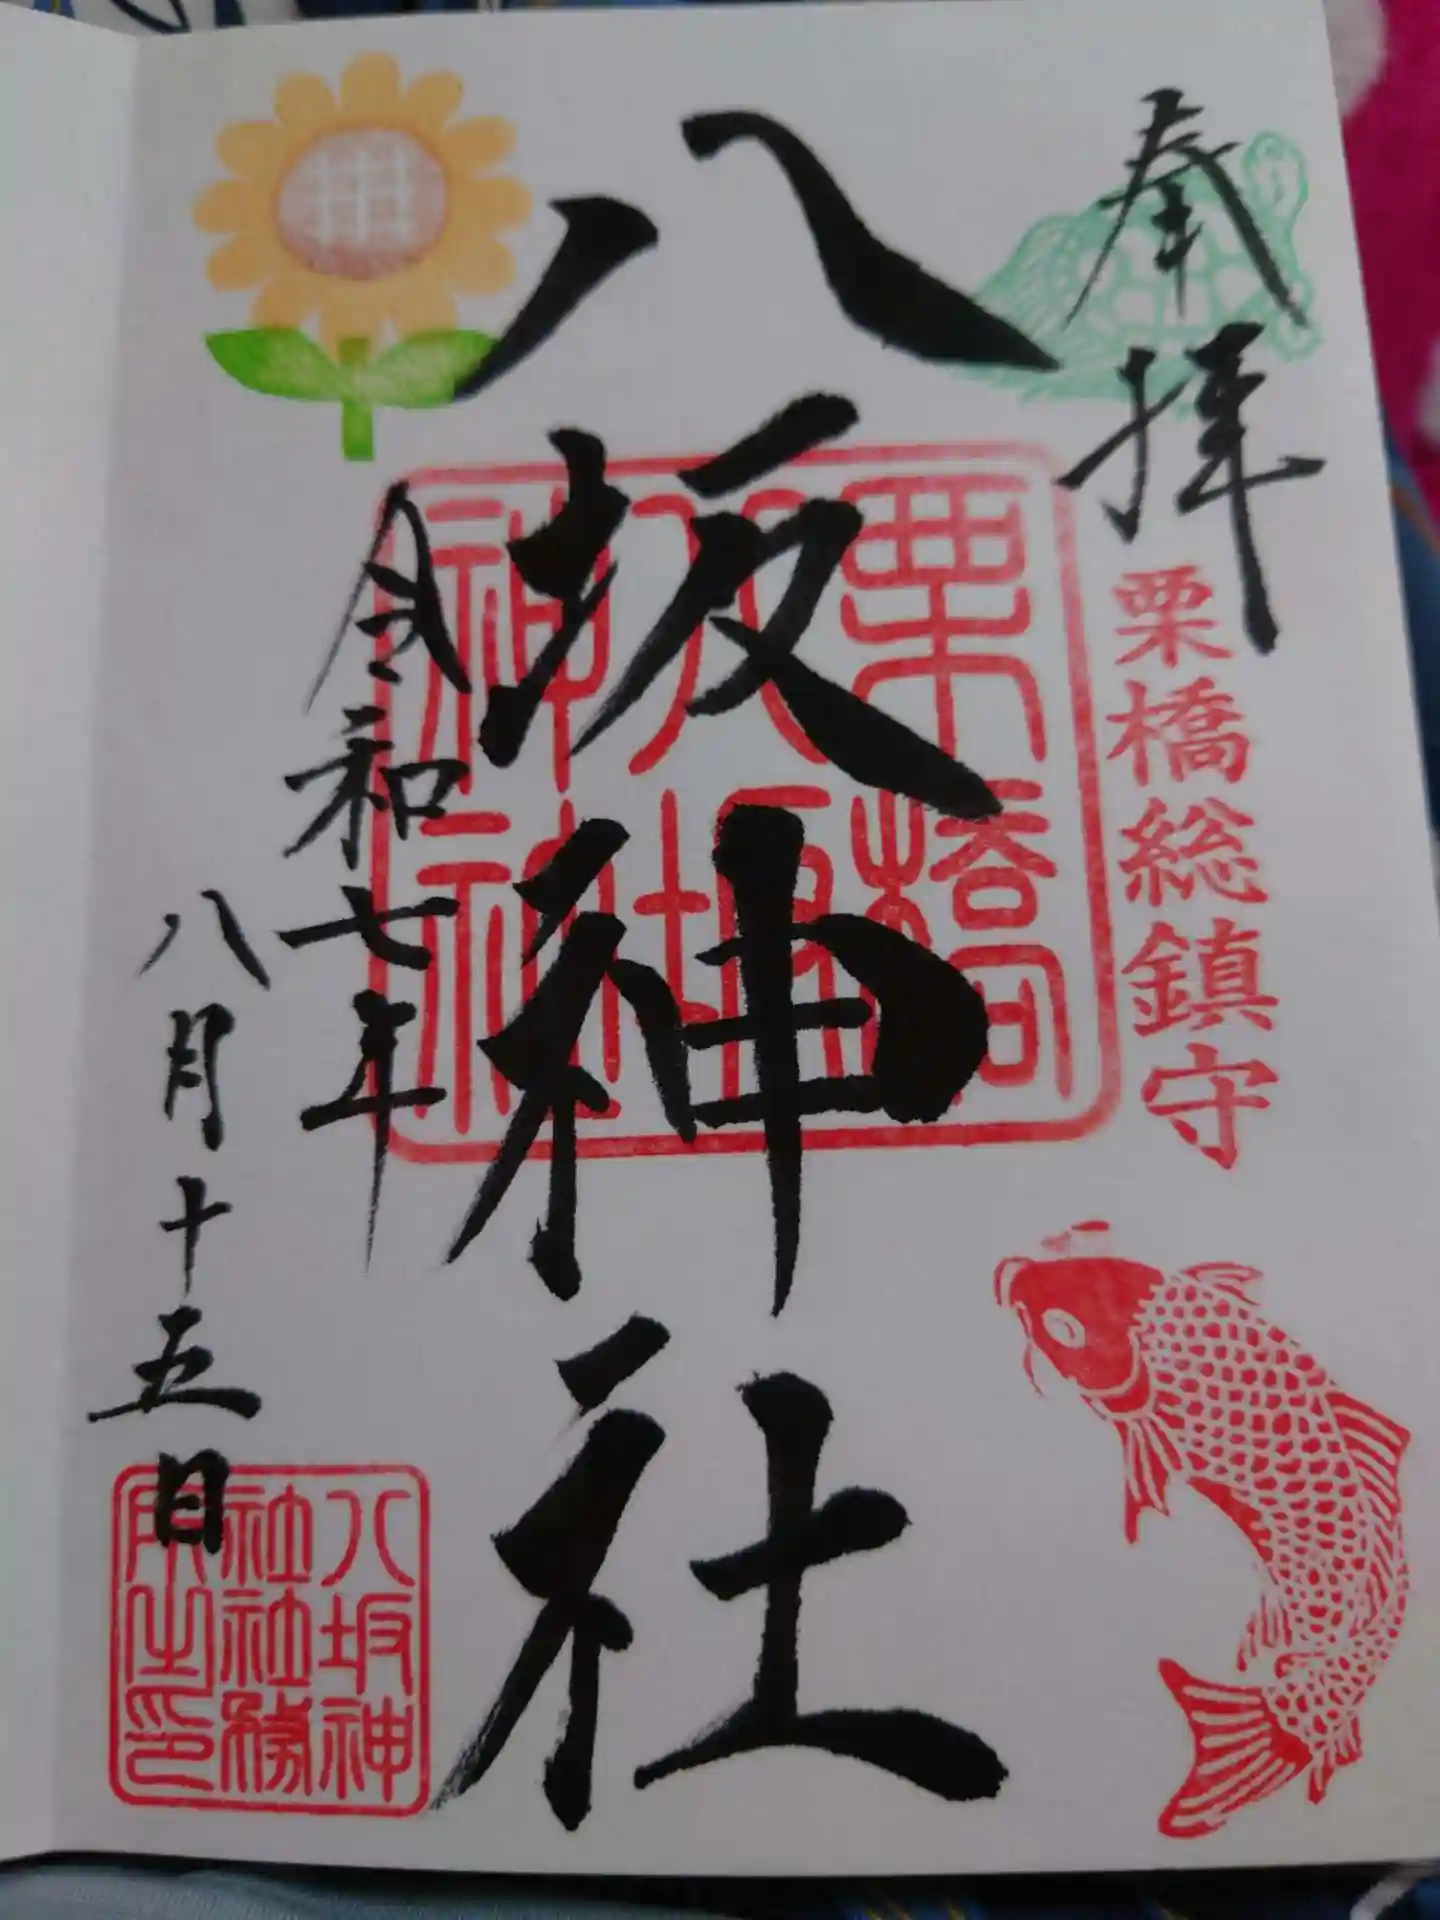 奉拝
栗橋総鎮守
八坂神社
栗橋
八坂
神社
令和七年
八月十五日
八坂神
社社務
所之印